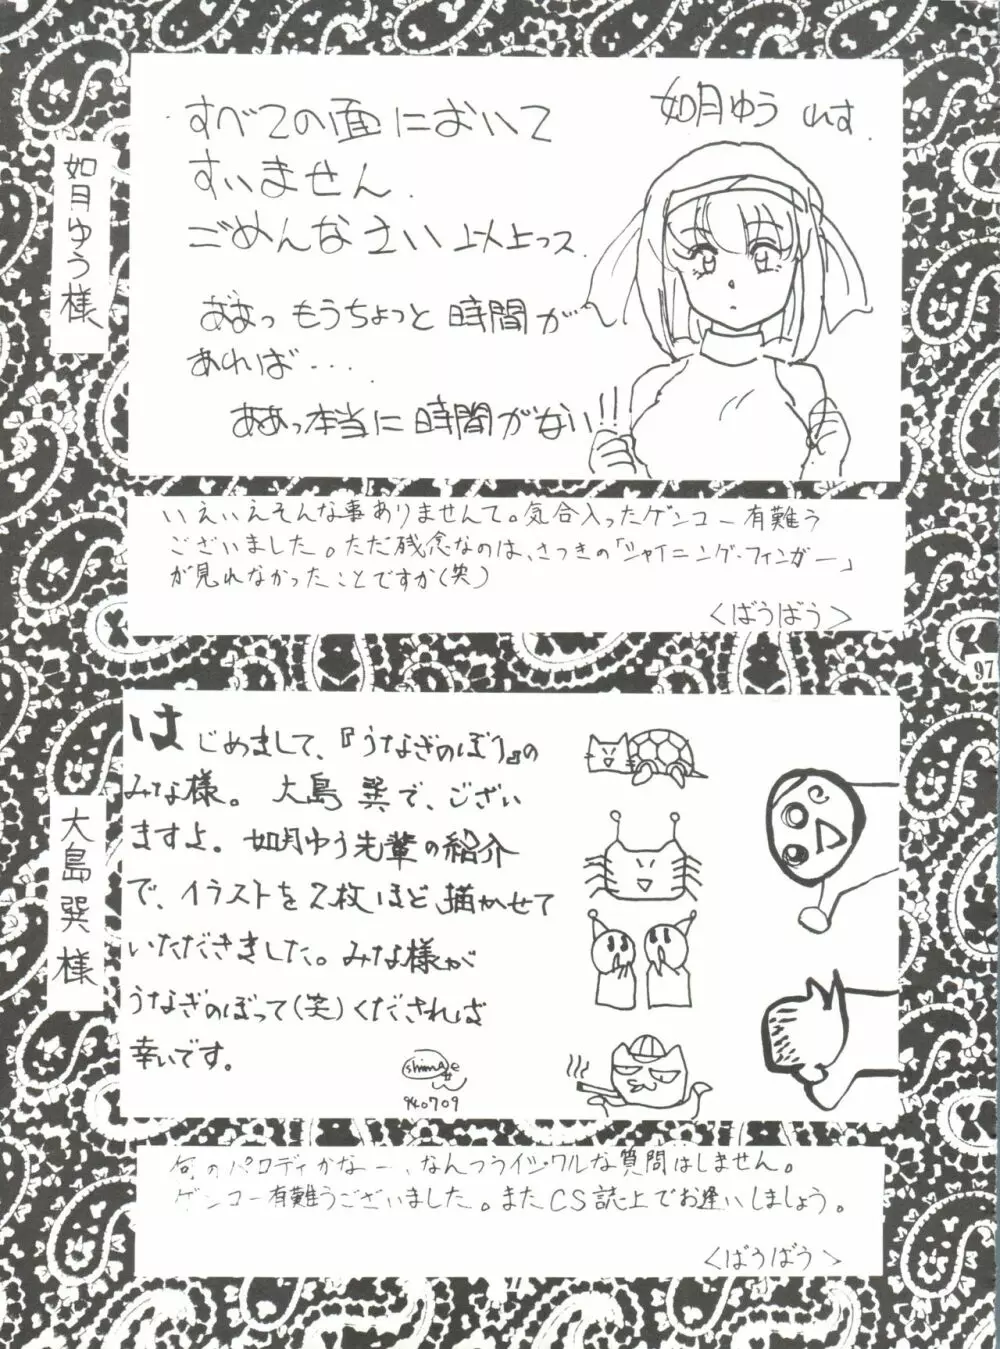 如月ゆう様
如月ゆう です.
すべての面において
すいません.
ごめんなさい 以上っス.
ああっ もうちょっと 時間が
あれば・・・.
ああっ本当に時間がない!!
いえいえそんな事ありませんて。気合入ったゲンコー有難う
ございました。ただ残念なのは、さつきの「シャイニング・フィンガー」
が見れなかったことですか(笑)
<ばうばう>
97
大島巽様
はじめまして、『うなぎのぼり』の
みな様。 大島 巽で、ござい
ますよ。 如月ゆう先輩の紹介
で、イラストを2枚ほど、描かせて
いただきました。みな様が
うなぎのぼって(笑)くだされば
幸いです。
940709
何のパロディかなー、なんつうイジワルな質問はしません。
ゲンコー有難うございました。またCS誌上でお逢いしましょう。
<ばうばう>